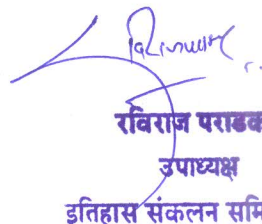 रविराज पराडक
उपाध्यक्ष
इतिहास संकलन समि